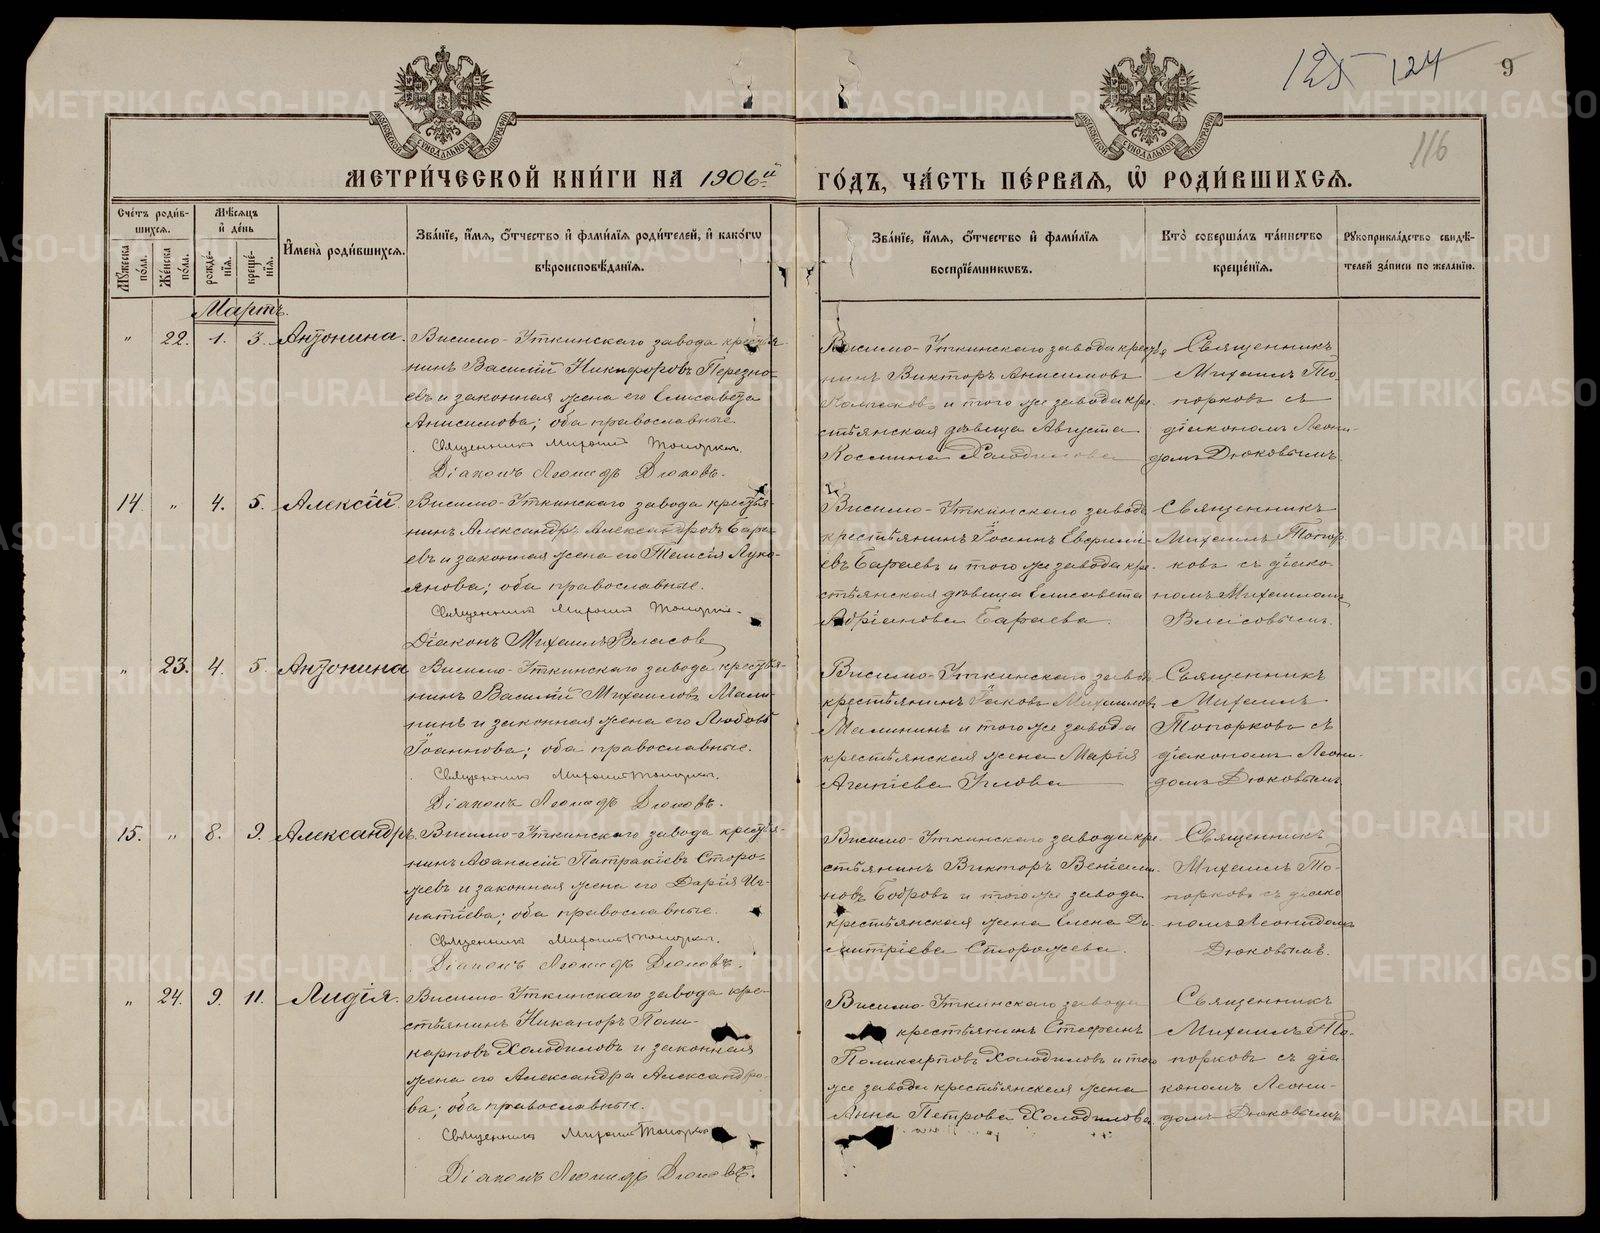 125 124 9
116
МОСКОВСКОЙ СУНОДАЛЬНОЙ ТИПОГРАФІИ
МОСКОВСКОЙ СУНОДАЛЬНОЙ ТИПОГРАФІИ
МЕТРИ́ЧЕСКОЙ КНИ́ГИ НА 1906й ГО́ДЪ, ЧА́СТЬ ПЕ́РВАЯ, Ѿ РОДИ́ВШИХСЯ.
Сче́тъ роди́в-
шихся.
Мꙋжеска по́ла.
Же́нска по́ла.
Мѣ́сяцъ
и҆ де́нь
рожде́-
нїя.
креще́-
нїя.
И҆мена̀ роди́вшихся.
Зва́нїе, и҆́мя, ѻ҆́тчество и҆ фами́лїя роди́телей, и҆ како́гѡ
вѣроисповѣ́данїя.
Зва́нїе, и҆́мя, ѻ҆́тчество и҆ фами́лїя
воспрїе́мникѡвъ.
Кто̀ соверша́лъ та́инство
креще́нїя.
Рꙋкоприкла́дство свидѣ́-
телей за́писи по жела́нїю.
Мартъ.
" 22. 1. 3. Антонина.
Висимо-Уткинскаго завода крестья-
нинъ Василій Никифоровъ
евъ и законная жена его Елисавета
Анисимова; оба православные.
Священникъ Михаилъ Топорковъ.
Діаконъ Леонидъ Дюковъ.
Висимо-Уткинскаго завода крестья
нинъ Викторъ Анисимовъ
и того же завода кре-
стьянская дѣвица Августа
Космина Холодилова
Священникъ
Михаилъ То-
порковъ съ
діакономъ Леони-
домъ Дюковымъ.
14. " 4. 5. Алексій.
Висимо-Уткинскаго завода крестья-
нинъ Александръ Александровъ Бара-
евъ и законная жена его Таисія Лука-
янова; оба православные.
Священникъ Михаилъ Топорковъ.
Діаконъ Михаилъ Власовъ
Висимо-Уткинскаго завода
крестьянинъ Іосифъ Евфими-
евъ Бараевъ и того же завода кре-
стьянская дѣвица Елисавета
Адріанова Бараева.
Священникъ
Михаилъ Топор-
ковъ съ діако-
номъ Михаиломъ
Власовымъ.
" 23. 4. 5. Антонина
Висимо-Уткинскаго завода крестья-
нинъ Василій Михаиловъ Мали-
нинъ и законная жена его Любовь
Іоаннова; оба православные.
Священникъ Михаилъ Топорковъ.
Діаконъ Леонидъ Дюковъ.
Висимо-Уткинскаго завода
крестьянинъ Іаковъ Михаиловъ
Малининъ и того же завода
крестьянская жена Марія
Агапіева
Священникъ
Михаилъ
Топорковъ съ
діакономъ Леони-
домъ Дюковымъ.
15. " 8. 9. Александръ.
Висимо-Уткинскаго завода крестья-
нинъ Аѳанасій Патракіевъ Сторо-
жевъ и законная жена его Дарія Иг-
натіева; оба православные.
Священникъ Михаилъ Топорковъ.
Діаконъ Леонидъ Дюковъ.
Висимо-Уткинскаго завода кре-
стьянинъ Викторъ Веніами-
новъ Бобровъ и того же завода
крестьянская жена Елена Ди-
митріева Сторожева.
Священникъ
Михаилъ То-
порковъ съ діако
номъ Леонидомъ
Дюковымъ.
" 24. 9. 11. Лидія.
Висимо-Уткинскаго завода кре-
стьянинъ Никаноръ Поли-
карповъ Холодиловъ и законная
жена его Александра Александро-
ва; оба православные.
Священникъ Михаилъ Топорковъ
Діаконъ Леонидъ Дюковъ.
Висимо-Уткинскаго завода
крестьянинъ Стефанъ
Поликарповъ Холодиловъ и того
же завода крестьянская жена
Анна Петрова Холодилова
Священникъ
Михаилъ То-
порковъ съ діа-
кономъ Леони-
домъ Дюковымъ
METRIKI.GASO-URAL.RU